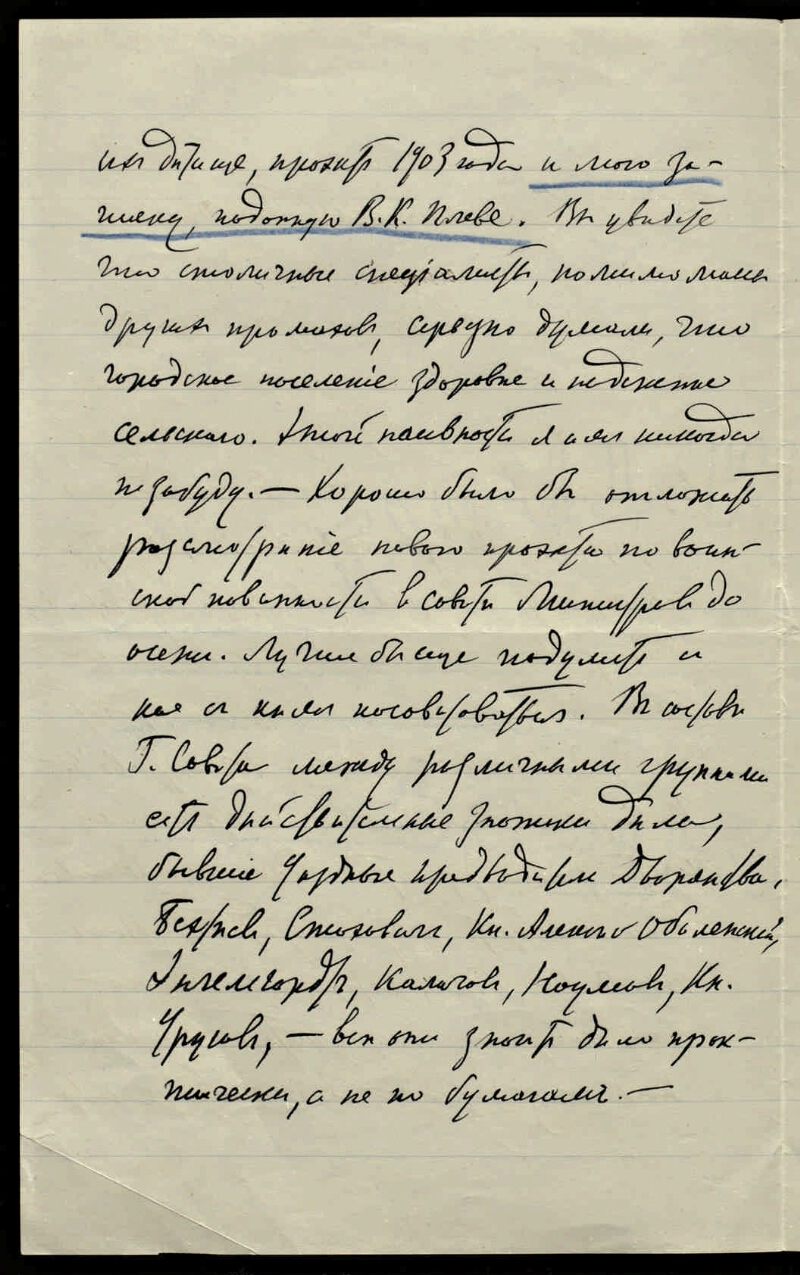 ихъ дѣтище, проэктъ 1903 года и мою за-
писку, поданную В. К. Плеве. Вы увидите
что столичные спеціалисты, помимо массы
другихъ промаховъ, серьезно думали, что
городское население здоровѣе и надежнѣе
сельскаго. Этой наивности я имъ никогда
не забуду. — Хорошо было бы отложить
разсмотрѣніе новаго проэкта по воин-
ской повинности въ Совѣтѣ Министровъ до
осени. Лучше бы еще подумать и
кое съ кѣмъ посовѣтоваться. Въ составѣ
Г. Совѣта между различными группами
есть дѣйствительные знатоки дѣла,
бывшіе уѣздные предводители Дворянства,
Стаховичъ, Кн. Алексѣй Оболенскій,
Энгельгардтъ, Калачовъ, Наумовъ, Кн.
Урусовъ, — всѣ они знаютъ дѣло прак-
тически, а не по бумагамъ. —